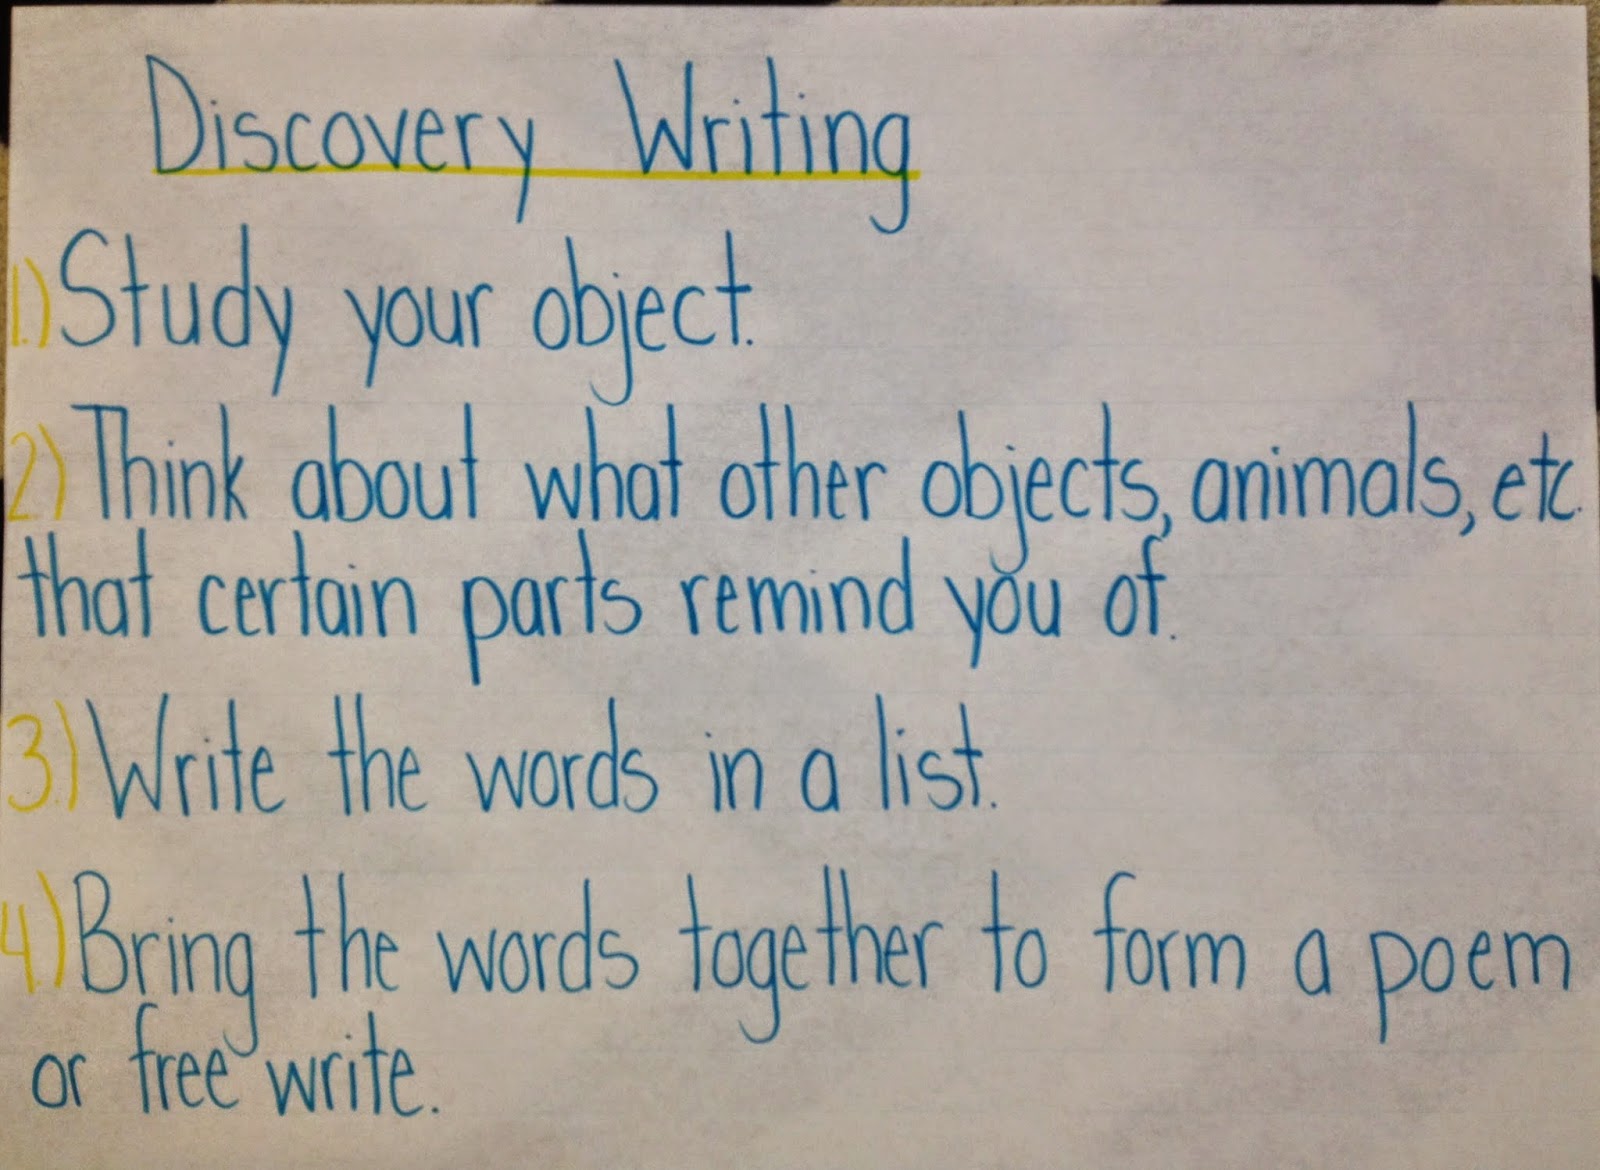 Discovery Writing
1.) Study your object.
2.) Think about what other objects, animals, etc.
that certain parts remind you of.
3.) Write the words in a list.
4.) Bring the words together to form a poem
or free write.